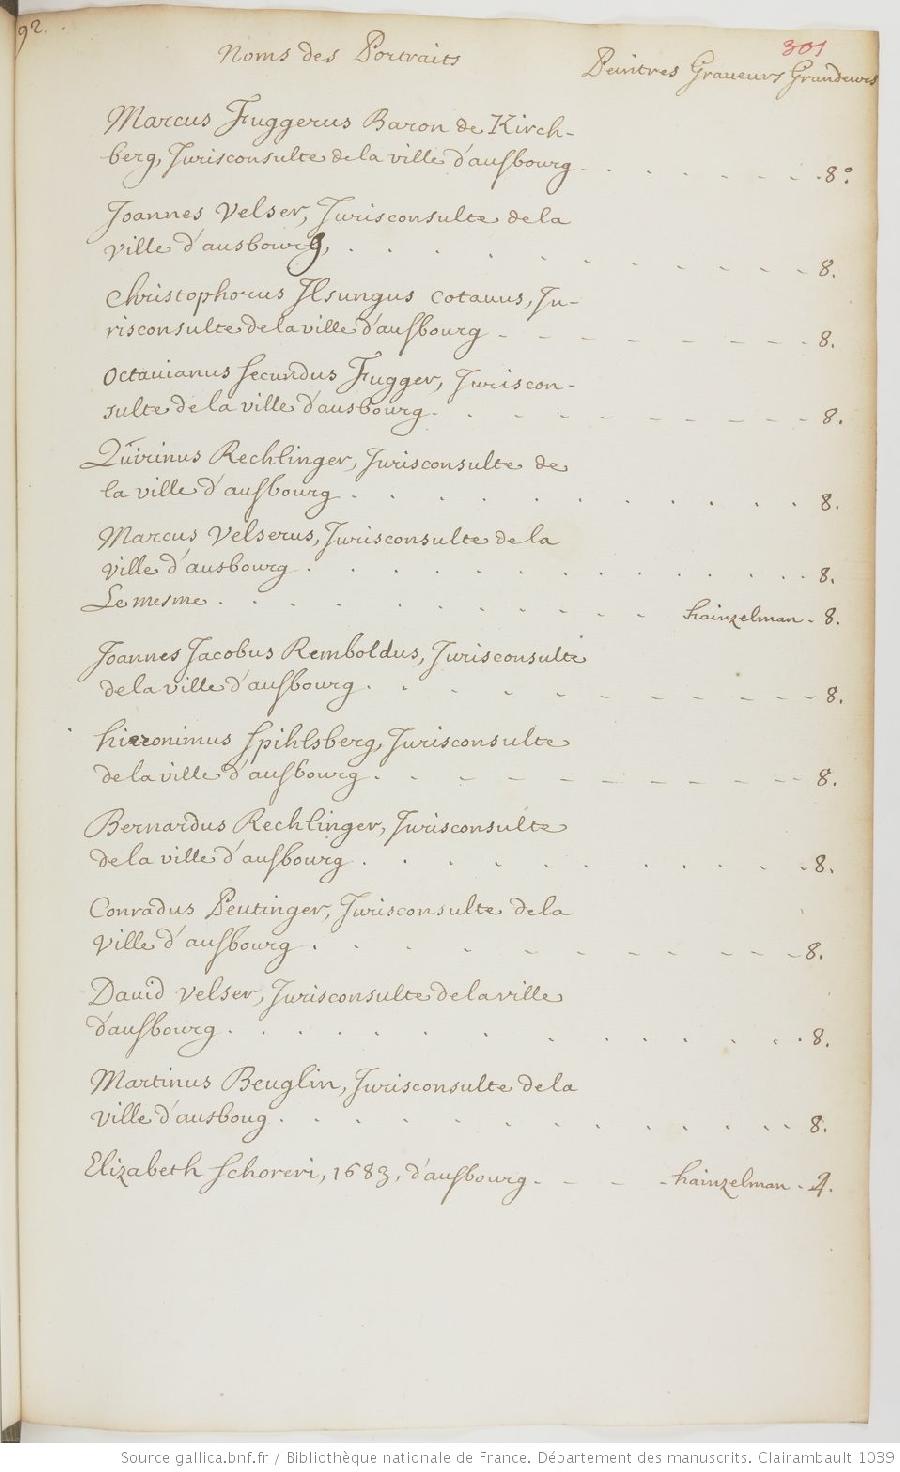 92.
301
Noms des Portraits Peintres Graveurs Grandeurs
Marcus Fuggerus Baron de Kirch-
berg, Jurisconsulte de la ville d'ausbourg - 8.°
Joannes Velser, Jurisconsulte de la
ville d'ausbourg, 8.
Christophorus Ilsungus cotauus, Ju-
risconsulte de la ville d'ausbourg - 8.
Octauianus Secundus Fugger, Juriscon-
sulte de la ville d'ausbourg. 8.
Quirinus Rechlinger, Jurisconsulte de
la ville d'ausbourg . 8.
Marcus Velserus, Jurisconsulte de la
ville d'ausbourg . 8.
Le mesme . hainzelman - 8.
Joannes Jacobus Remboldus, Jurisconsulte
de la ville d'ausbourg . 8.
hieronimus Spihlsberg, Jurisconsulte
de la ville d'ausbourg . 8.
Bernardus Rechlinger, Jurisconsulte
de la ville d'ausbourg . 8.
Conradus Peutinger, Jurisconsulte de la
ville d'ausbourg . 8.
Dauid velser, Jurisconsulte de la ville
d'ausbourg . 8.
Martinus Beuglin, Jurisconsulte de la
ville d'ausboug . 8.
Elizabeth Schoreri, 1683, d'ausbourg - hainzelman - 4.
Source gallica.bnf.fr / Bibliothèque nationale de France. Département des manuscrits. Clairambault 1039